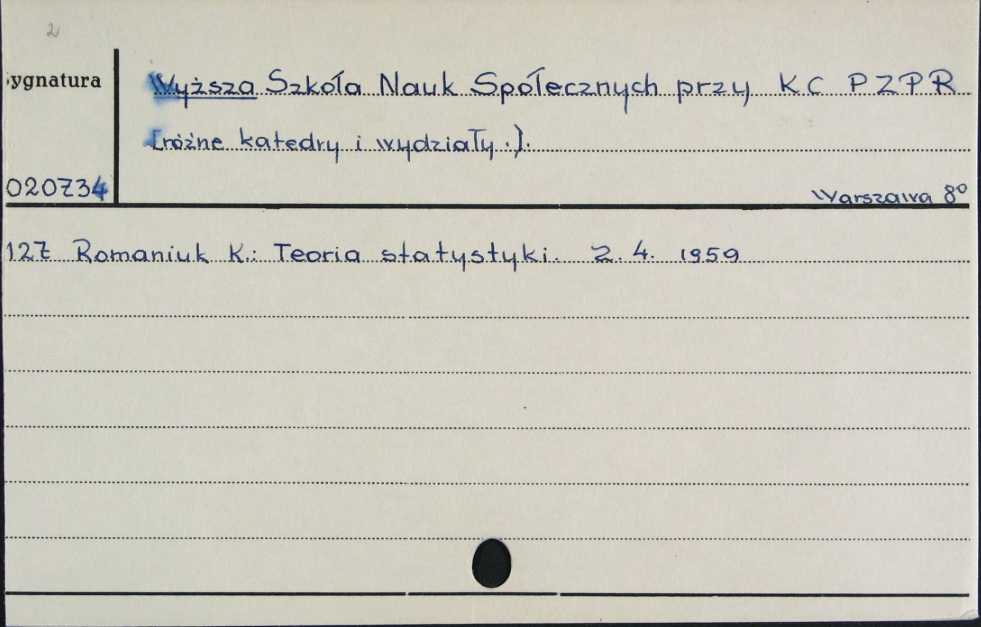 2
ygnatura
Wyższa Szkoła Nauk Społecznych przy KC PZPR
[różne katedry i wydziały.].
020734
Warszawa 8°
127 Romaniuk K.: Teoria statystyki. 2. 4. 1959